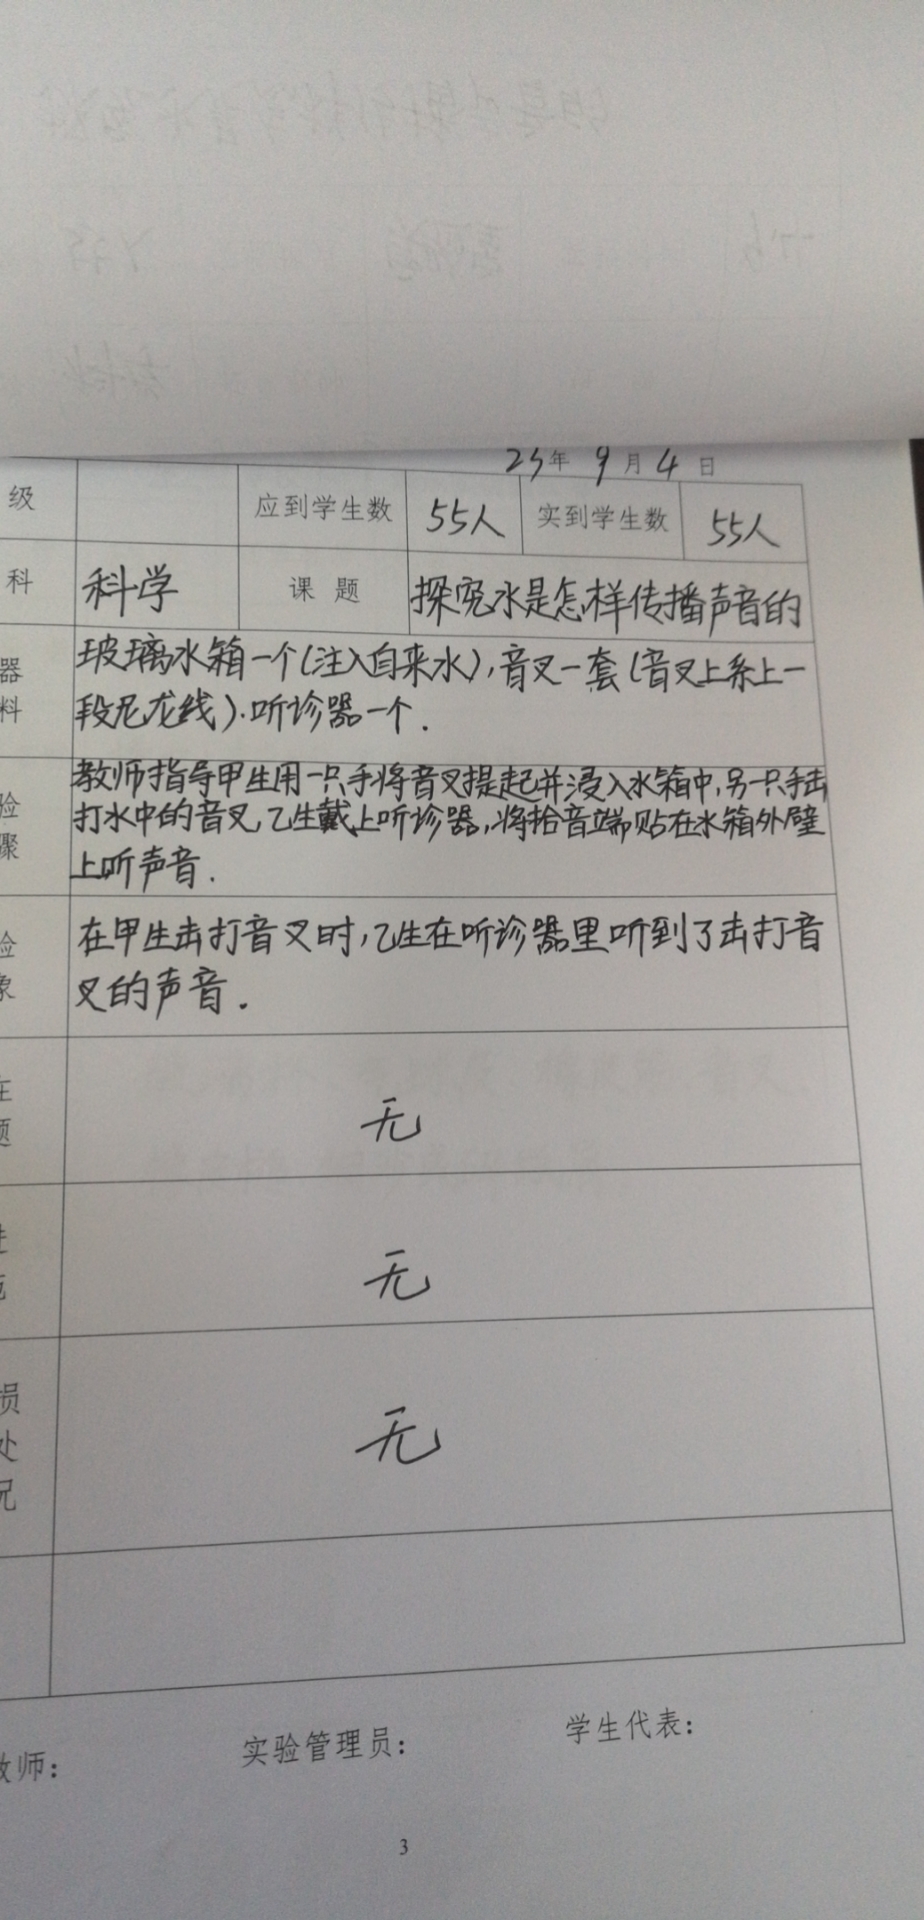 23年9月4日
级 应到学生数 55人 实到学生数 55人
科 科学 课题 探究水是怎样传播声音的
器 玻璃水箱一个(注入自来水),音叉一套(音叉上系上一
料 段尼龙线).听诊器一个.
教师指导甲生用一只手将音叉提起并浸入水箱中,另一只手击
验 打水中的音叉,乙生戴上听诊器,将拾音端贴在水箱外壁
骤 上听声音.
在甲生击打音叉时,乙生在听诊器里听到了击打音
叉的声音.
无
题
无
损
处 无
况
教师: 实验管理员: 学生代表:
3